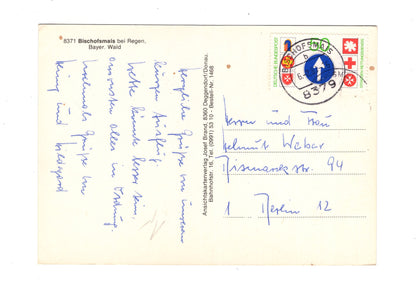 8371 Bischofsmais bei Regen,
Bayer. Wald
herzliche Grüße von unserem
kurzen Ausflug.
Wetter könnte besser sein,
ansonsten alles in Ordnung.
nochmals Grüße
und
Ansichtskartenverlag Josef Brand, 8360 Deggendorf/Donau,
Bahnhofstr. 16, Tel. (0991) 53 10 - Bestell-Nr. 1468
DEUTSCHE BUNDESPOST
BISCHOFSMAIS
8379
Herrn und Frau
Helmut Weber
Bismarckstr. 94
1 Berlin 12